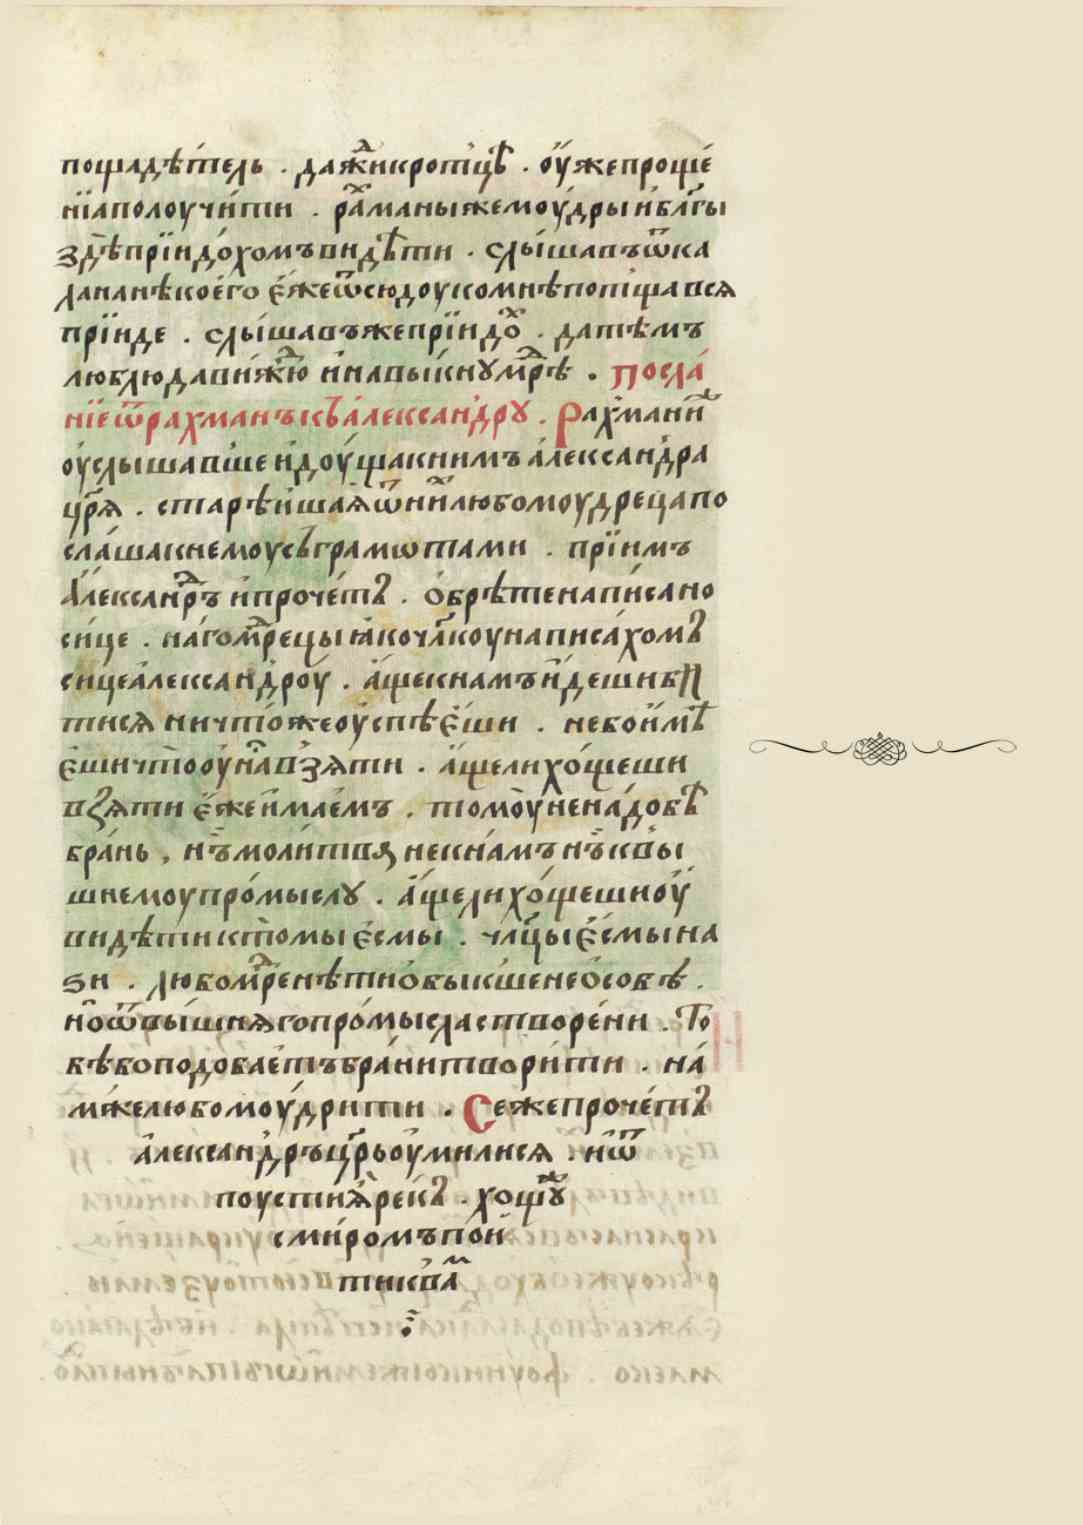 пощадѣ́тель . дажⷣикротцѣ̑ . оу҆́жепроще́
нїаполоучи́ти . ра́ⷯманыжемоу́дрыи҆бл҃гы
здѣ̀прїидо́хомъвидѣ̑ти . слы́шавъѿка
ланаꙗ̀нѣкое́го є҆́жеѿсюдоукомнѣпотщавсѧ
прїиде . слы́шавъжеприїидоⷯ . датѣмъ
люблюдави́жⷣю и҆навы́кнꙋмⷣрѣ . посла́
нїеѿрахманъкъа҆леѯа́ндрꙋ . Рахманиⷤ
оу҆слы́шавшеи҆доу́щакнимъа҆лекса́ндра
цр҃ѧ . старѣи҆шаѧѿниⷯлюбомоудрецапо
сла́шакнемоусъгра́мѡтами . прїимъ
А҆лексанⷣръ и҆проче́тъ . о҆брѣтенапи́сано
си́це . на́гомⷣрецыꙗ҆кочл҃коунаписа́хомъ
сицеа҆лекса́ндроу . а҆́щекнамъи҆́дешиби
тисѧ ничто́жеоу҆спѣе҆́ши . небои҆мѣ̑
е҆́шичтооу҆на́ⷭвзѧти . а҆́щелихо́щеши
взѧти є҆́жеи҆ма́емъ . томоу̀нена́добѣ̑
бра́нь , нъ̀моли́твѧ некна́мънъ̀квы
шнемоупро́мыслꙋ . а҆́щелихо́щешноу҆́
видѣтиктомы є҆смы . члц҃ыє҆смына
ѕи . любомⷣренѣтио҆бы́кшенео҆собѣ .
но̀ѿвы́шнѧгопро́мысластворе́ни . То
бѣбоподоба́етъбра́нитвори́ти . на́
мжелюбомоу́дрити . Сежепроче́тъ
а҆лекса́ндръцр҃ьоу҆мили́сѧ . и҆ѿ
поустиѧ҆̀рекъ . хощꙋⷤ
сми́ромъпои҆
тиква́ⷨ